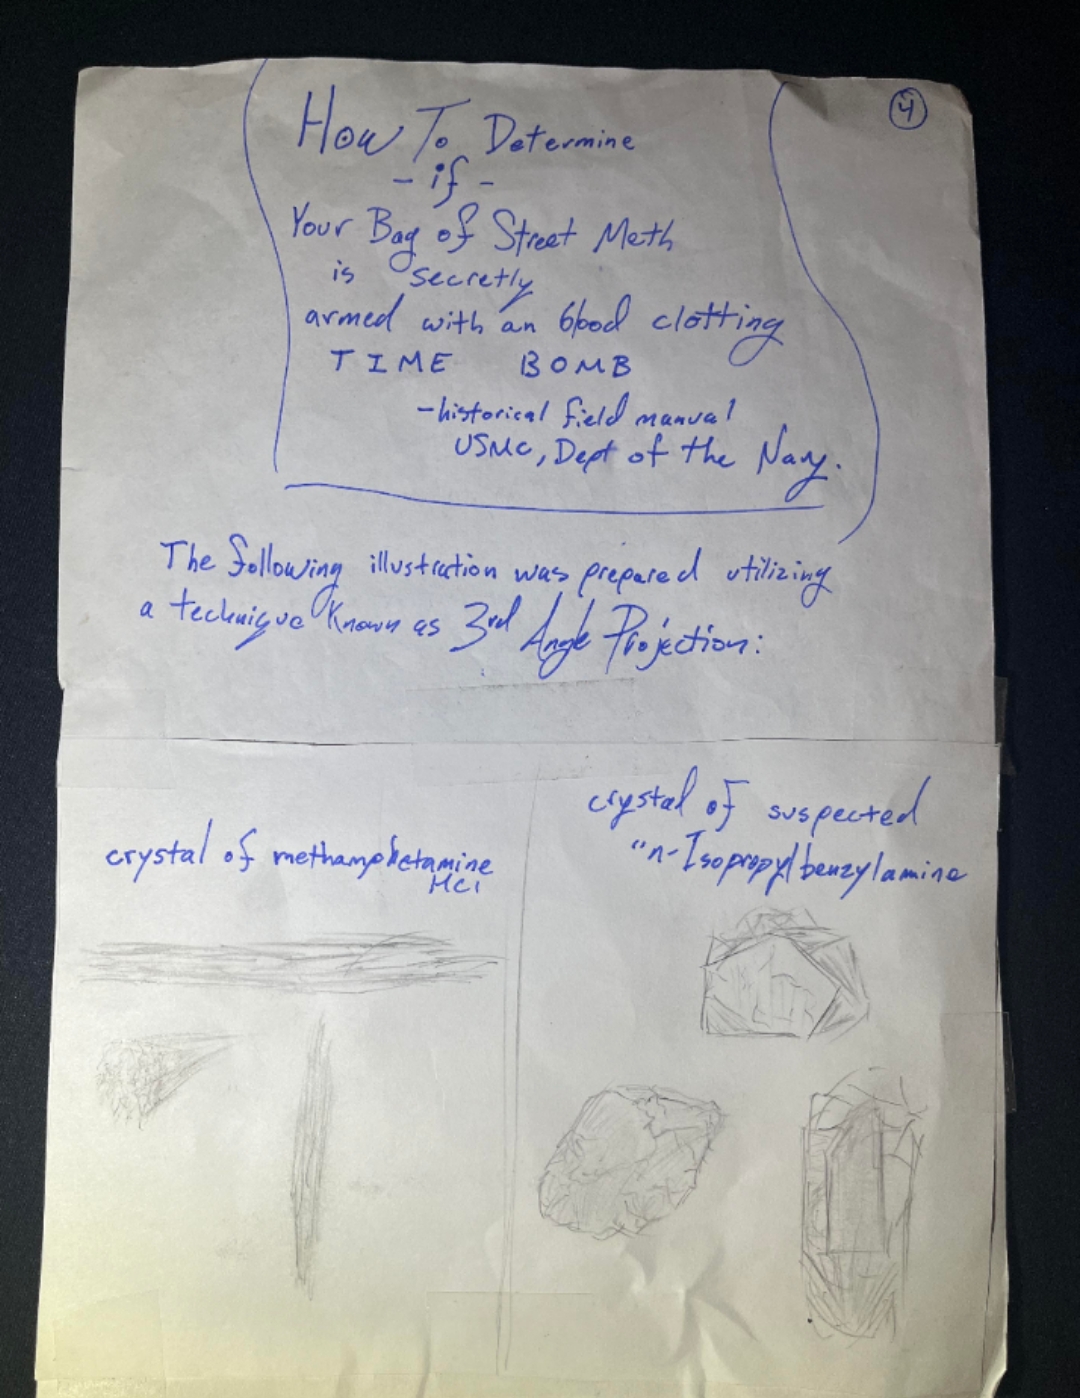 4
How To Determine
- if -
Your Bag of Street Meth
is secretly
armed with an blood clotting
TIME BOMB
-historical field manual
USMC, Dept of the Navy.
The following illustration was prepared utilizing
a technique Known as 3rd Angle Projection:
crystal of methamphetamine
HCl
crystal of suspected
"n-Isopropylbenzylamine